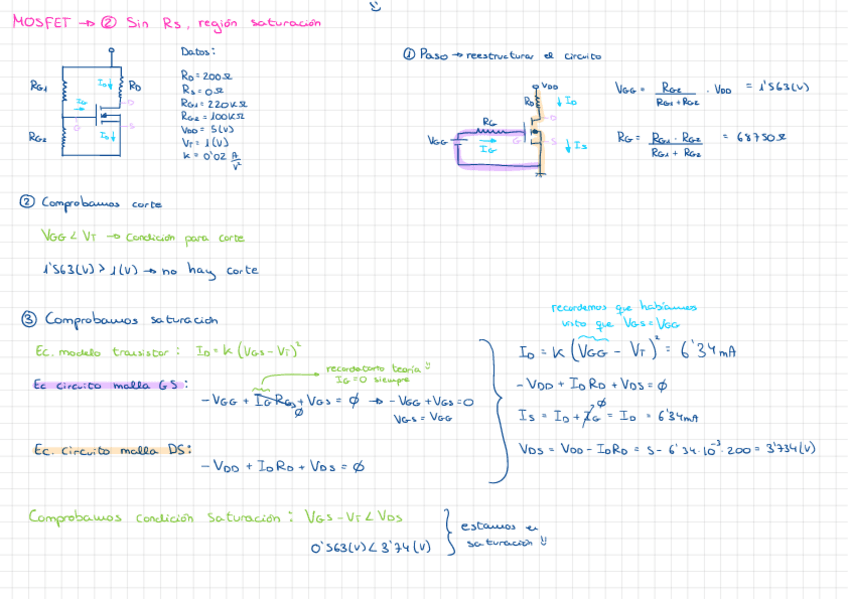 MOSFET → ② Sin Rs, región saturación
RG1
RG2
RD
ID ↓
IG
G
D
S
ID ↓
Datos:
RD = 200Ω
RS = 0Ω
RG1 = 220KΩ
RG2 = 100KΩ
VDD = 5(V)
VT = 1(V)
K = 0'02 A/V²
① Paso → reestructurar el circuito
VDD
RD
↓ ID
D
RG
G
S
VGG
IG
↓ IS
VGG = RG2 / (RG1 + RG2) · VDD = 1'563(V)
RG = RG1 · RG2 / (RG1 + RG2) = 68750Ω
② Comprobamos corte
VGG < VT → Condición para corte
1'563(V) > 1(V) → no hay corte
③ Comprobamos saturación
Ec. modelo transistor: ID = K (VGS - VT)²
recordatorio teoría
IG = 0 siempre
Ec circuito malla GS:
-VGG + IG RG + VGS = 0 → -VGG + VGS = 0
0
VGS = VGG
Ec. circuito malla DS:
-VDD + ID RD + VDS = 0
recordemos que habíamos
visto que VGS = VGG
ID = K (VGG - VT)² = 6'34mA
-VDD + ID RD + VDS = 0
0
IS = ID + IG = ID = 6'34mA
VDS = VDD - ID RD = 5 - 6'34·10⁻³·200 = 3'734(V)
Comprobamos condición saturación: VGS - VT < VDS
0'563(V) < 3'74(V)
estamos en
saturación